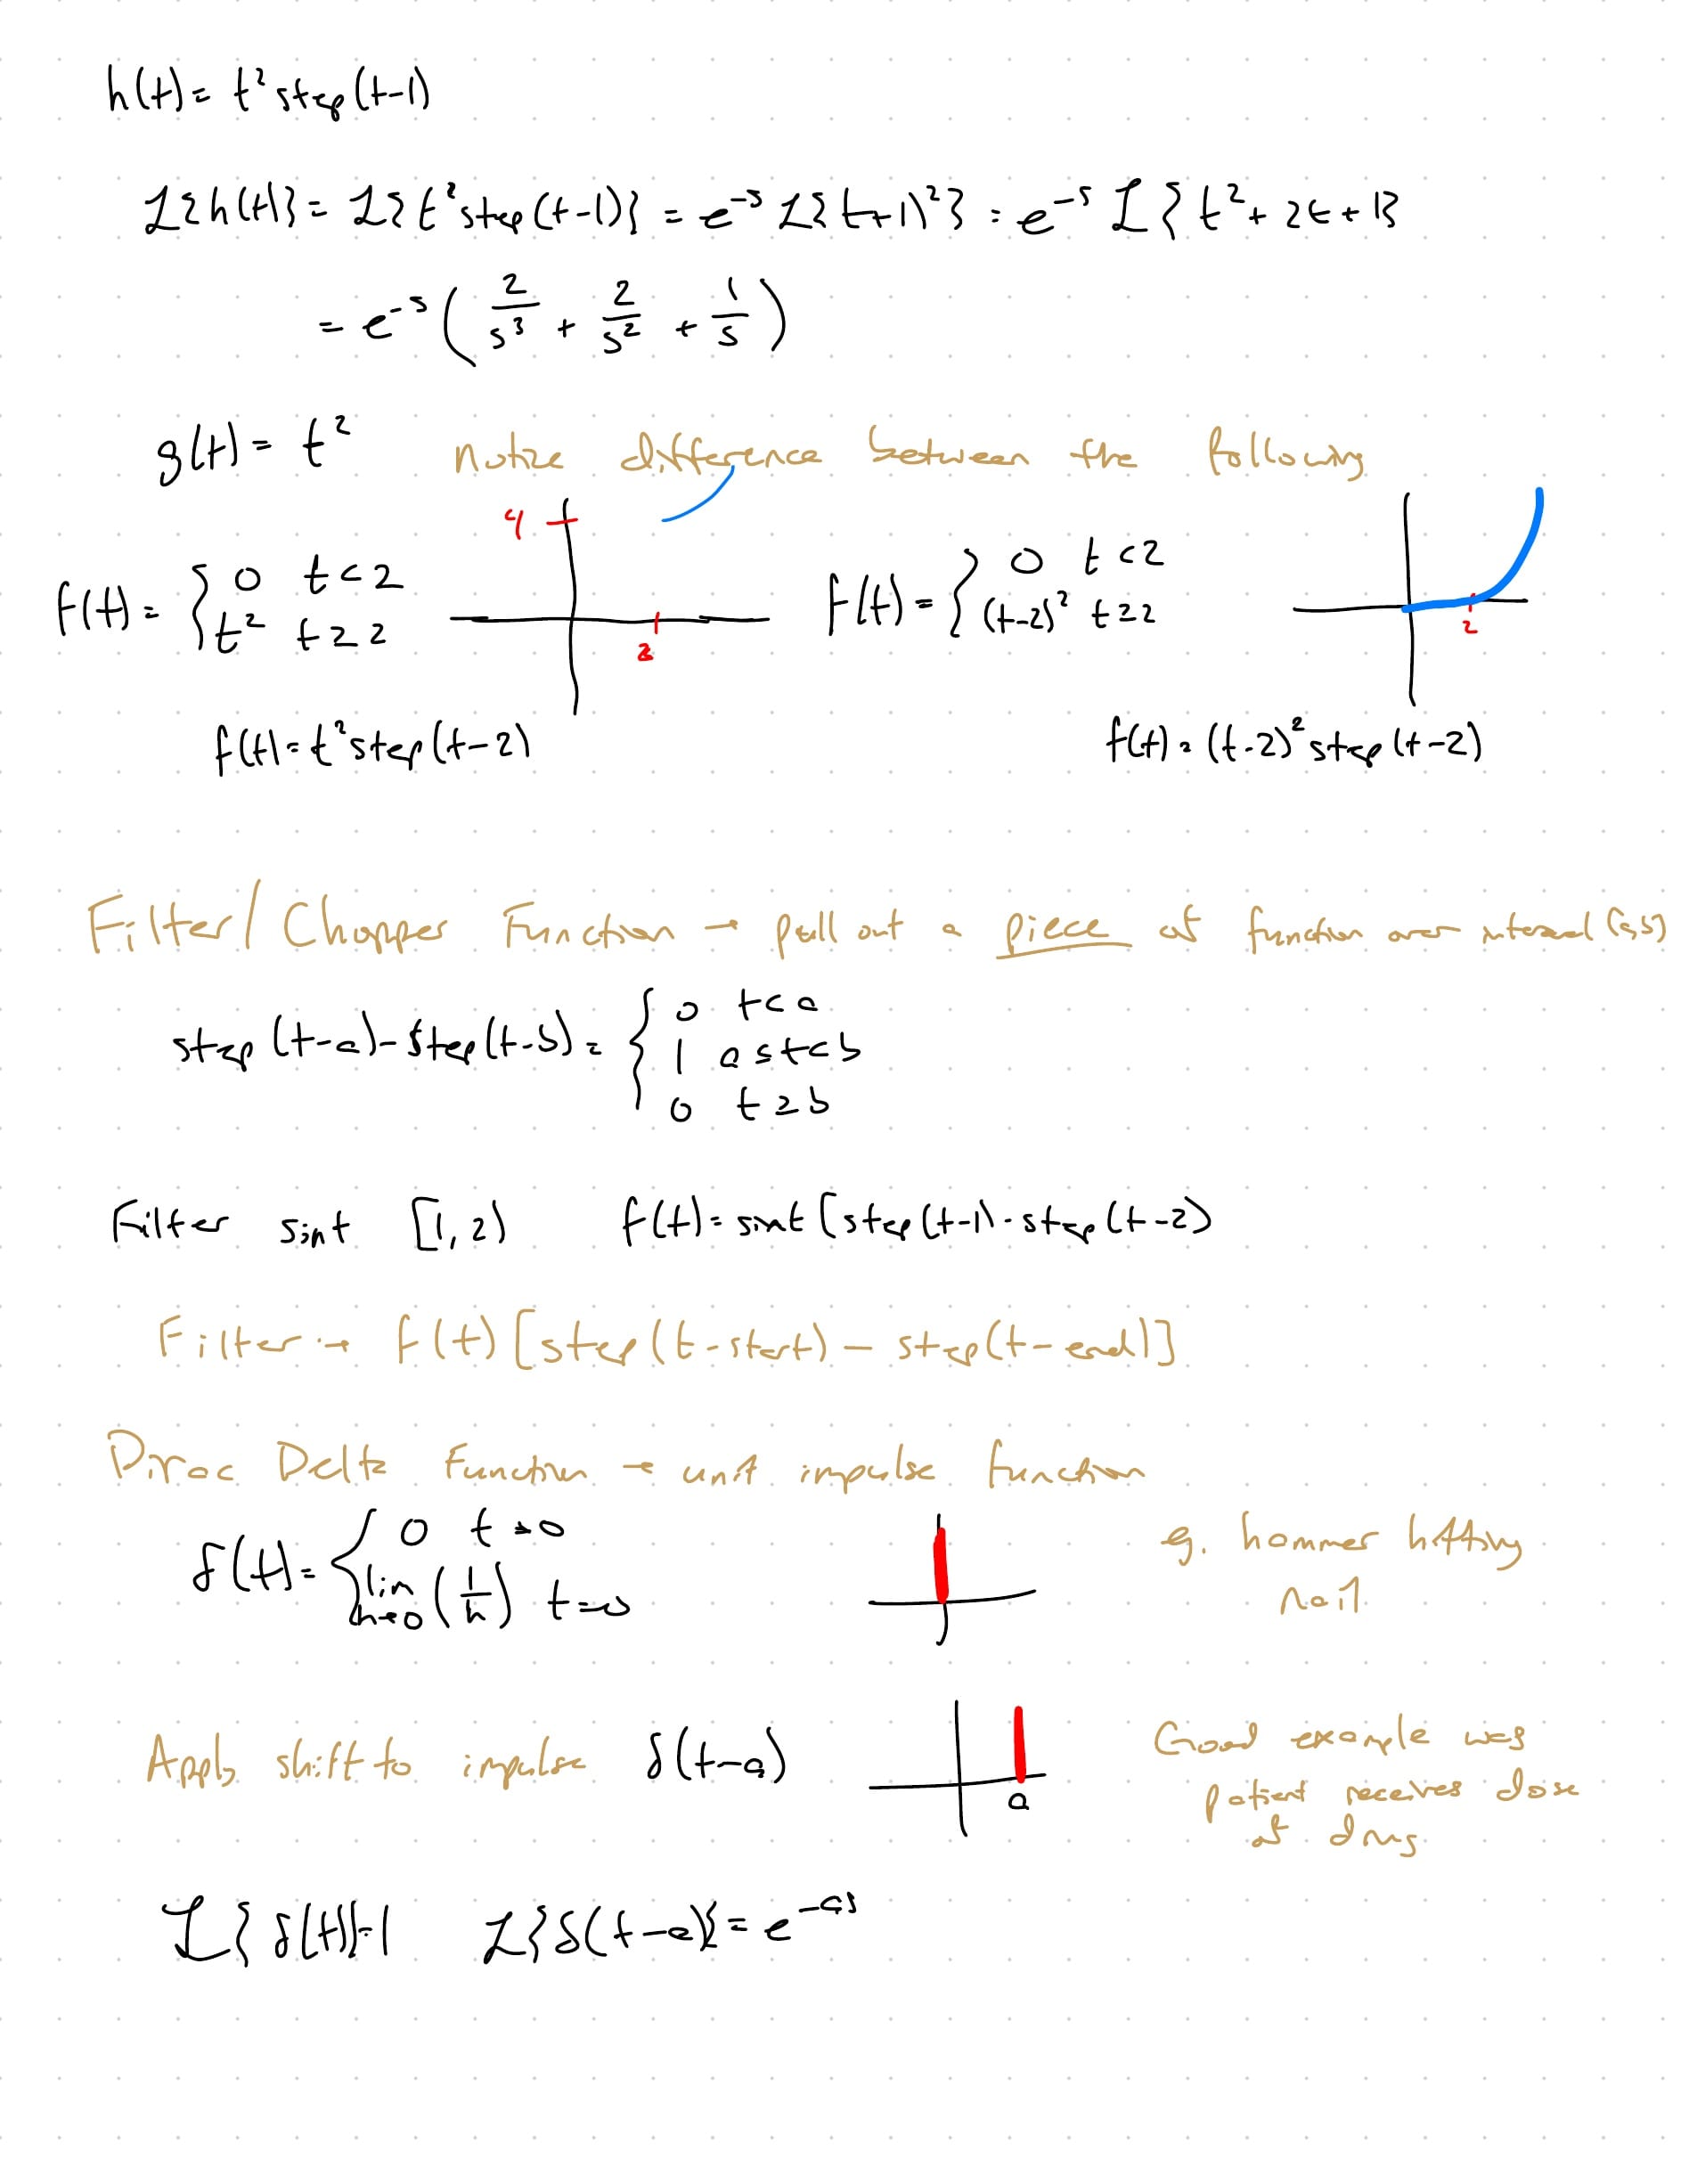 h(t) = t² step(t-1)
ℒ{h(t)} = ℒ{t² step(t-1)} = e^{-s} ℒ{(t+1)²} = e^{-s} ℒ{t² + 2t + 1}
= e^{-s} ( 2/s³ + 2/s² + 1/s )
g(t) = t² Notice difference between the following
4
f(t) = { 0 t<2
t² t≥2
2
f(t) = { 0 t<2
(t-2)² t≥2
2
f(t) = t² step(t-2)
f(t) = (t-2)² step(t-2)
Filter/Chopper Function → pull out a piece of function over interval (a,b)
step(t-a) - step(t-b) = { 0 t<a
1 a≤t<b
0 t≥b
Filter sint [1,2) f(t) = sint [step(t-1) - step(t-2)
Filter → f(t) [step(t-start) - step(t-end)]
Dirac Delta Function → unit impulse function
δ(t) = { 0 t≠0
lim h→0 (1/h) t=0
e.g. hammer hitting
nail
Apply shift to impulse δ(t-a)
a
Good example was
patient receives dose
of drug
ℒ{δ(t)}=1 ℒ{δ(t-a)} = e^{-as}